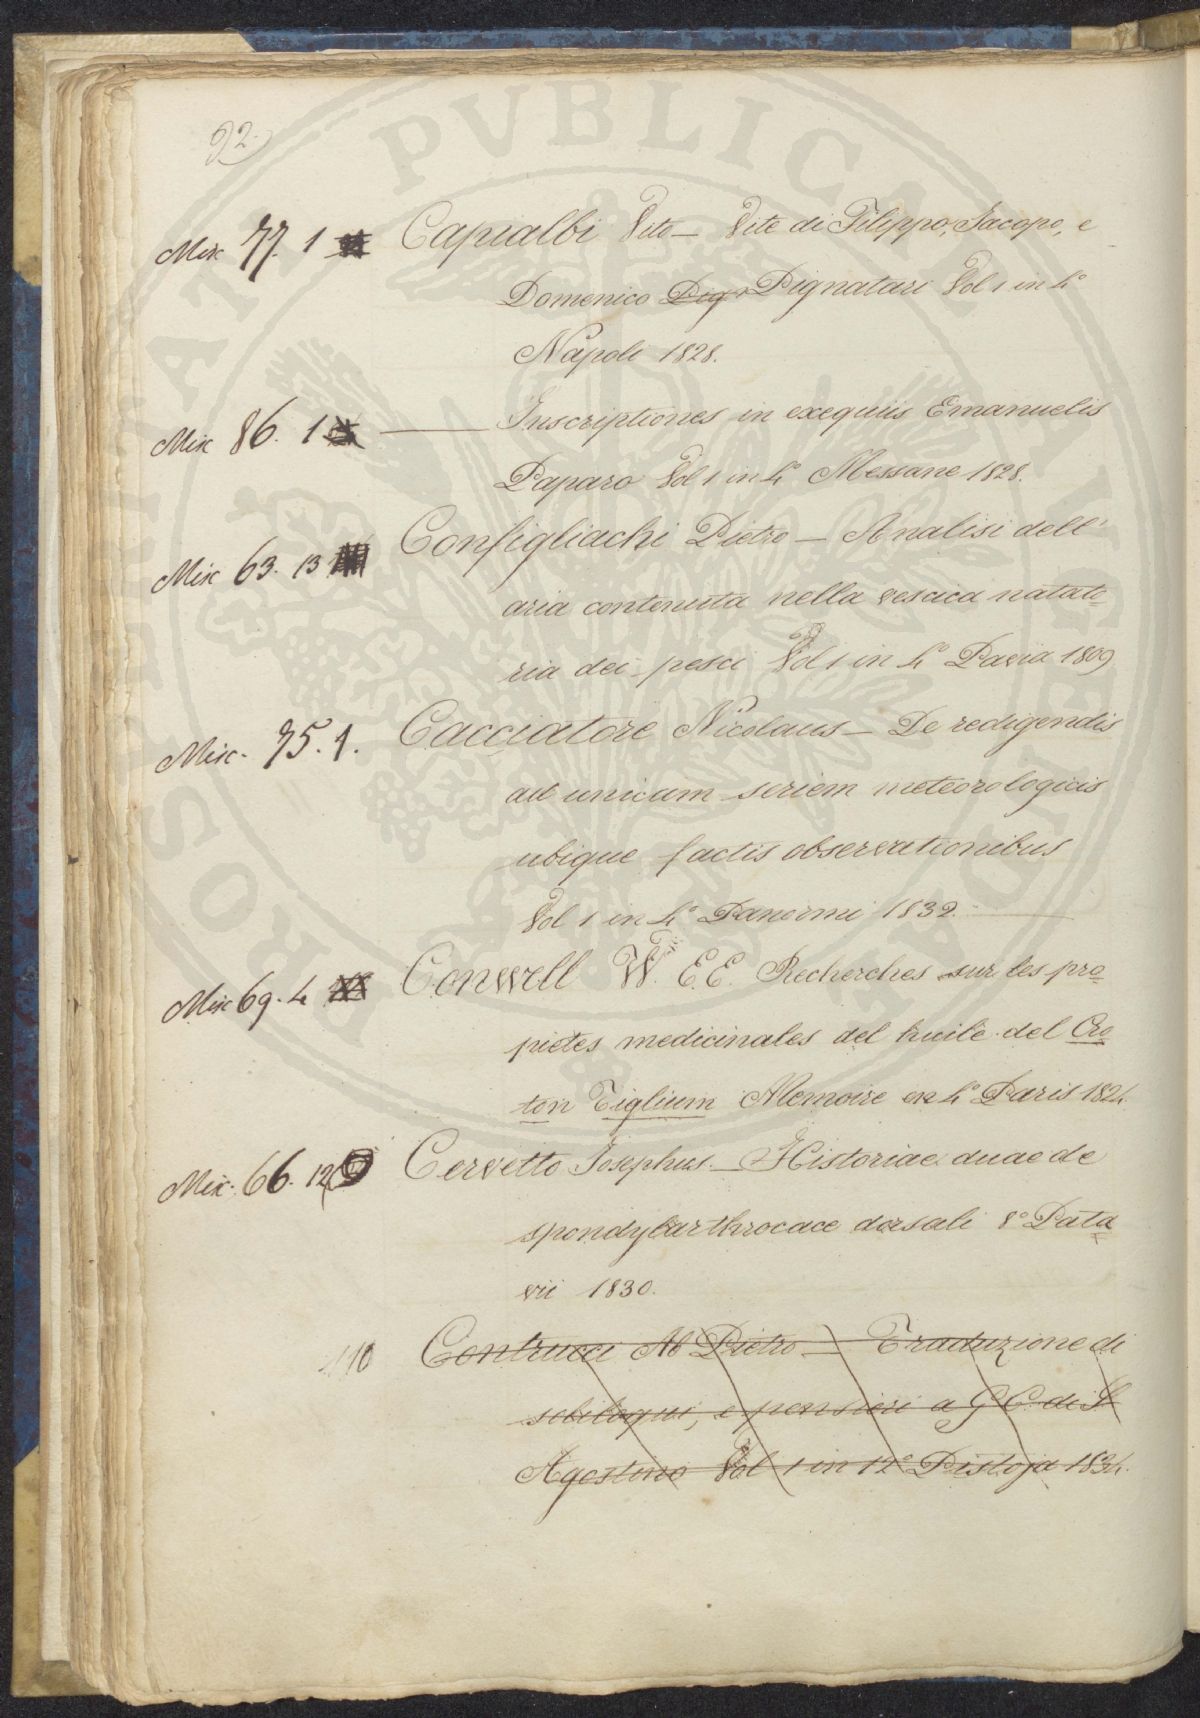 92.
Misc 77. 1 Capialbi Vito — Vite di Filippo, Jacopo, e
Domenico Pign Pignatari Vol 1 in 4°
Napoli 1828.
Misc 86. 1 ——— Inscriptiones in exequiis Emanuelis
Paparo Vol 1 in 4 Messane 1828.
Misc 63. 13 Configliachi Pietro — Analisi dell'
aria contenuta nella vescica natato=
ria dei pesci Vol 1 in 4° Pavia 1809
Misc. 75. 1. Cacciatore Nicolaus — De redigendis
ad unicum seriem meteorologicis
ubique factis observationibus
Vol 1 in 4° Panormi 1832.
Misc 69. 4 Conwell W. E.E. Recherches sur les pro=
pietes medicinales del huile del Cro
ton Tiglium Memoire en 4° Paris 1824.
Misc. 66. 12 Cervetto Josephus. — Historiae duae de
spondylarthrocace dorsali 8° Pata
vii 1830.
110 Contrucci Ab Pietro — Traduzione di
soliloqui, e pensieri a G C. di S
Agostino Vol 1 in 12° Pistoja 1834.
PVBLICAE